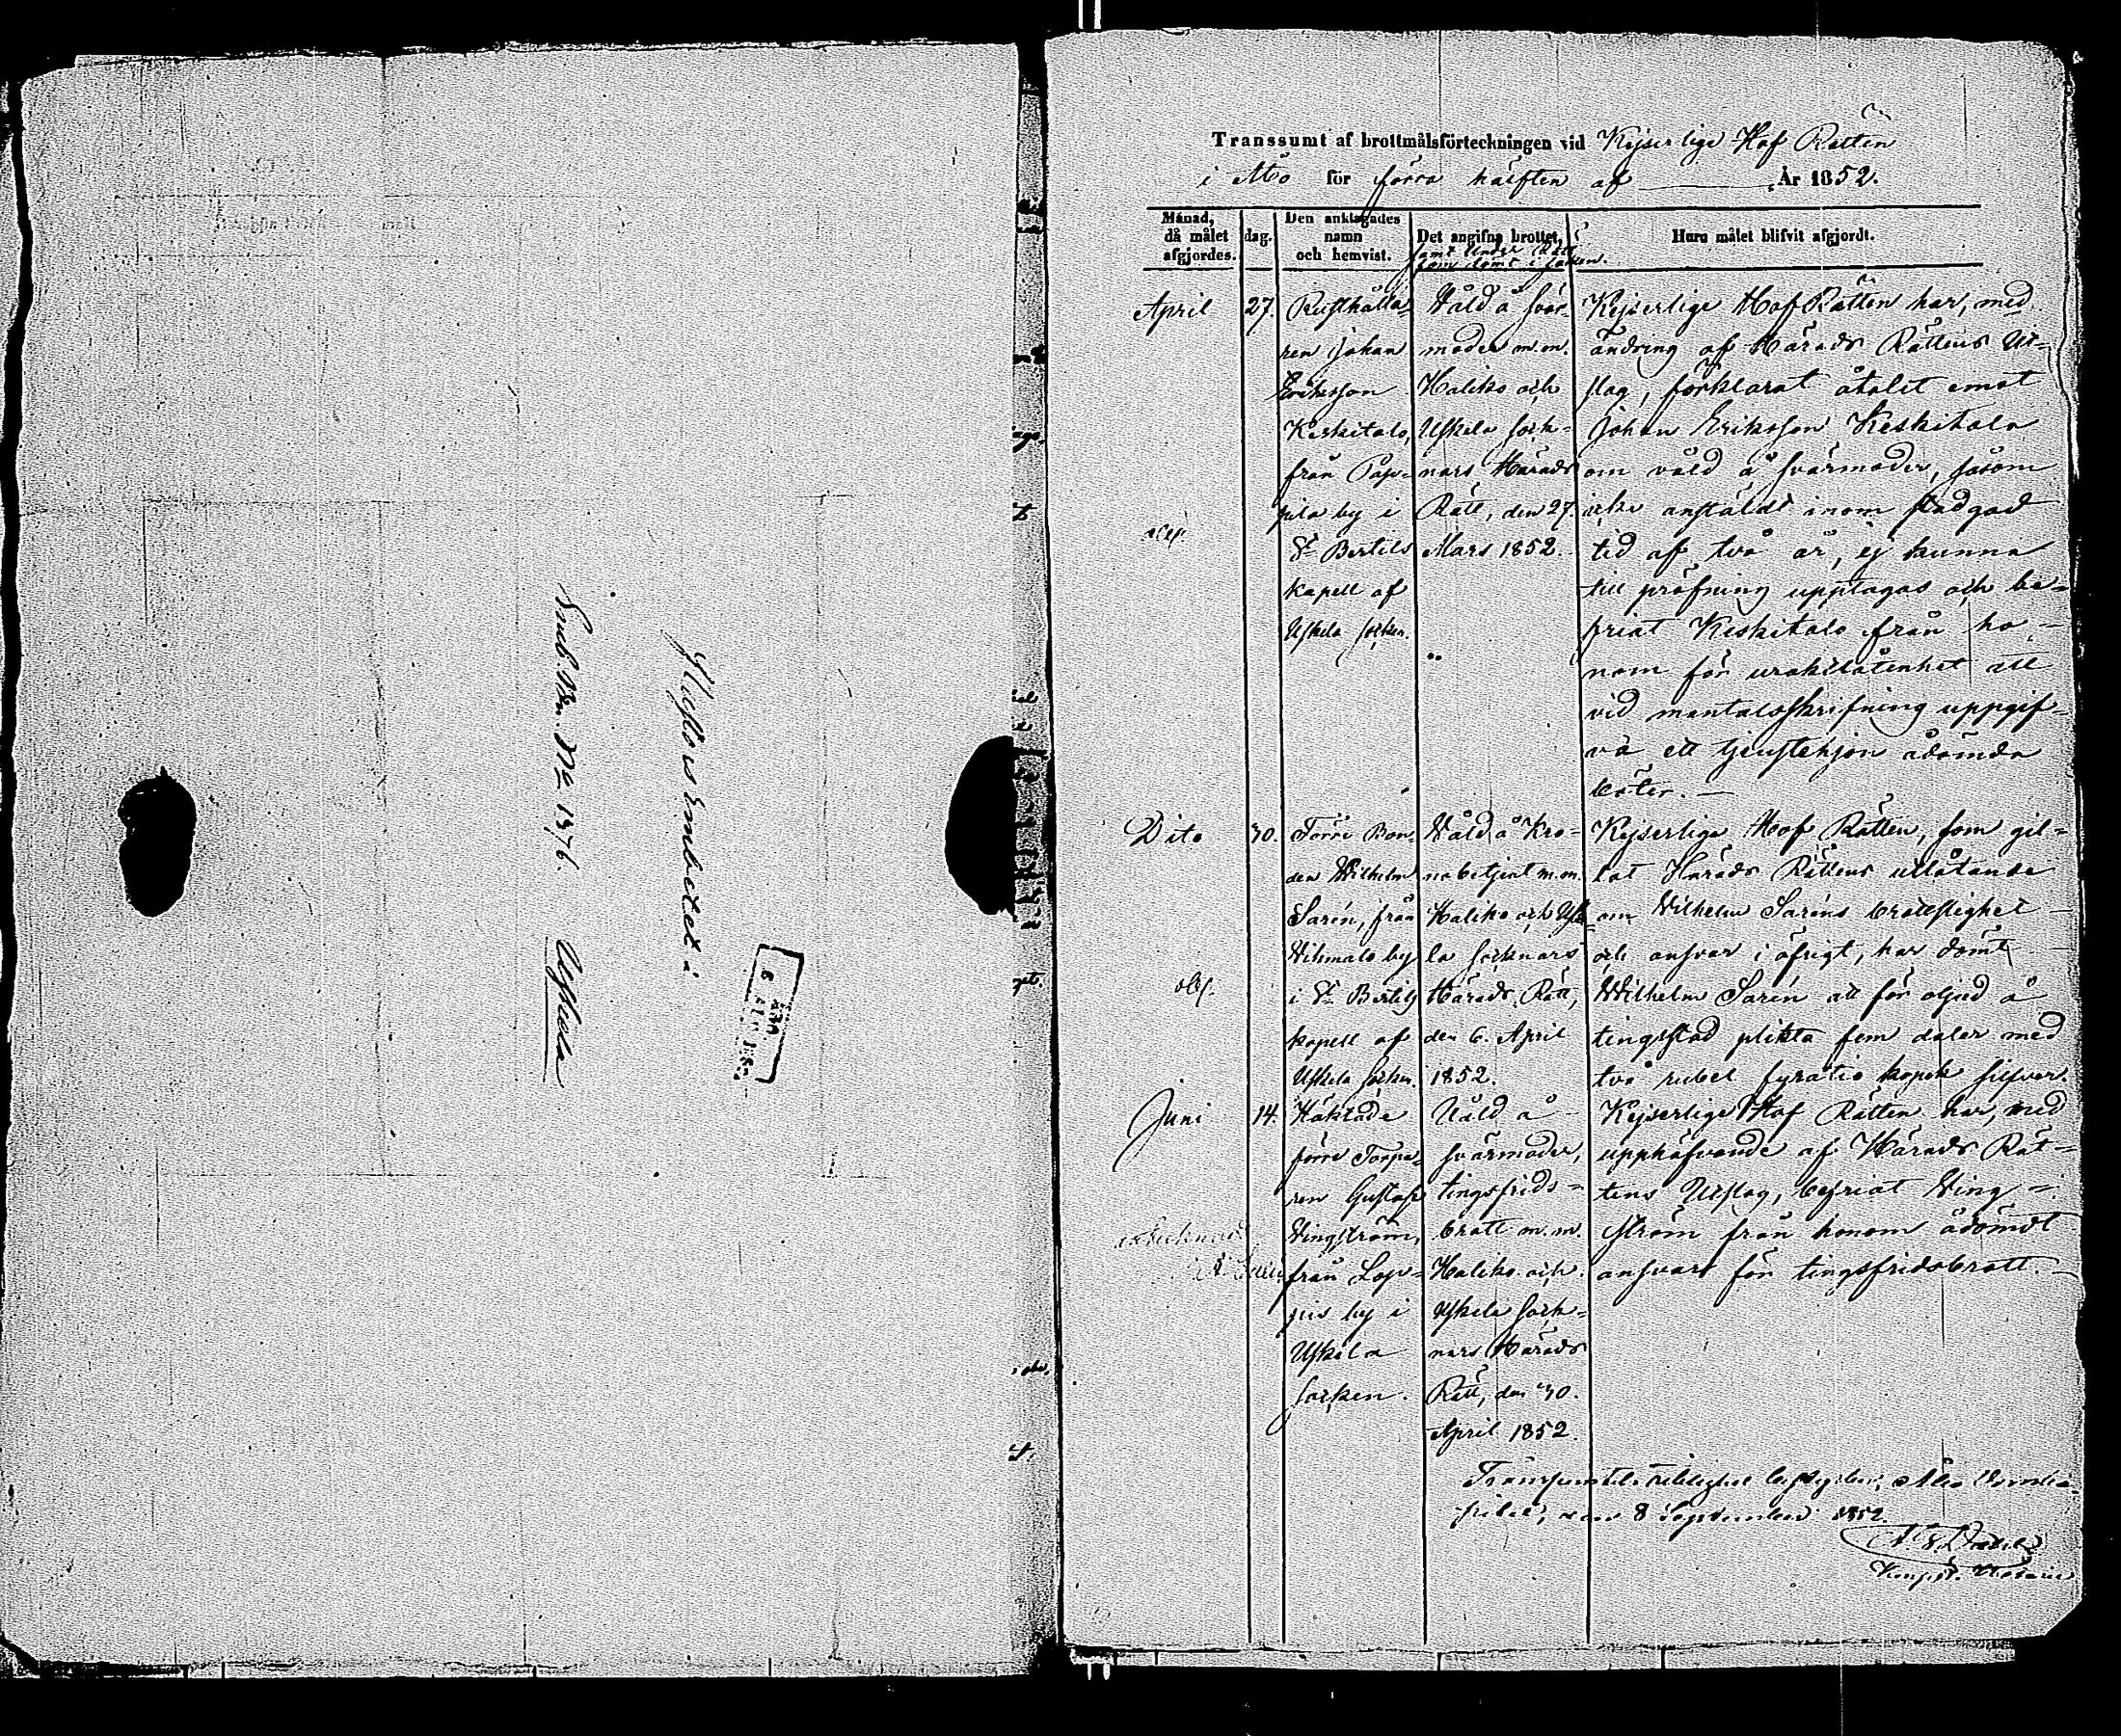 Pastors embetet i
Uskela
Transsumt af brottmålsförteckningen vid Kejserlige Hof Rätten
i Åbo för förra hälften af År 1852.
Månad, då målet afgjordes.
dag.
Den anklagades namn och hemvist.
Det angifna brottet,
samt Under Rätt
som dömt i saken.
Huru målet blifvit afgjordt.
April
27.
Rusthålla-
ren Johan
Eriksson
Keskitalo,
från Pap-
pila by i
St Bertils
kapell af
Uskela socken.
Våld å svär-
moder m.m.
Haliko och
Uskela sock-
nars Härads
Rätt, den 27.
Mars 1852.
Kejserlige Hof Rätten har, med
ändring af Härads Rättens Ut-
slag, förklarat åtalet emot
Johan Eriksson Keskitalo
om våld å svärmoder, såsom
icke anstäldt inom stadgad
tid af två år, ej kunna
till pröfning upptagas och be-
friat Keskitalo från ho-
nom för uraktlåtenhet att
vid mantalsskrifning uppgif-
va ett tjenstehjon ådömda
böter.
Dito
30.
Förre Bon-
den Wilhelm
Sarén, från
Vihmalo by
i St Bertils
kapell af
Uskela socken.
Våld å Kro-
nobetjent m.m.
Haliko och Uske-
la socknars
Härads Rätt,
den 6. April
1852.
Kejserlige Hof Rätten, som gil-
lat Härads Rättens utlåtande
om Wilhelm Saréns brottslighet
och ansvar i öfrigt, har dömt
Wilhelm Sarén att för oljud å
tingsstad plikta fem daler med
två rubel fyratio kopek silfver.
Juni
14.
Häktade
förre Torpa-
ren Gustaf
Vingström,
från Lop-
pis by i
Uskela
socken.
Våld å
svärmoder,
tingsfrids-
brott m.m.
Haliko och
Uskela sock-
nars Härads
Rätt, den 30.
April 1852.
Kejserlige Hof Rätten har, med
upphäfvande af Härads Rät-
tens Utslag, befriat Ving-
ström från honom ådömdt
ansvar för tingsfridsbrott.
den 8 September 1852.